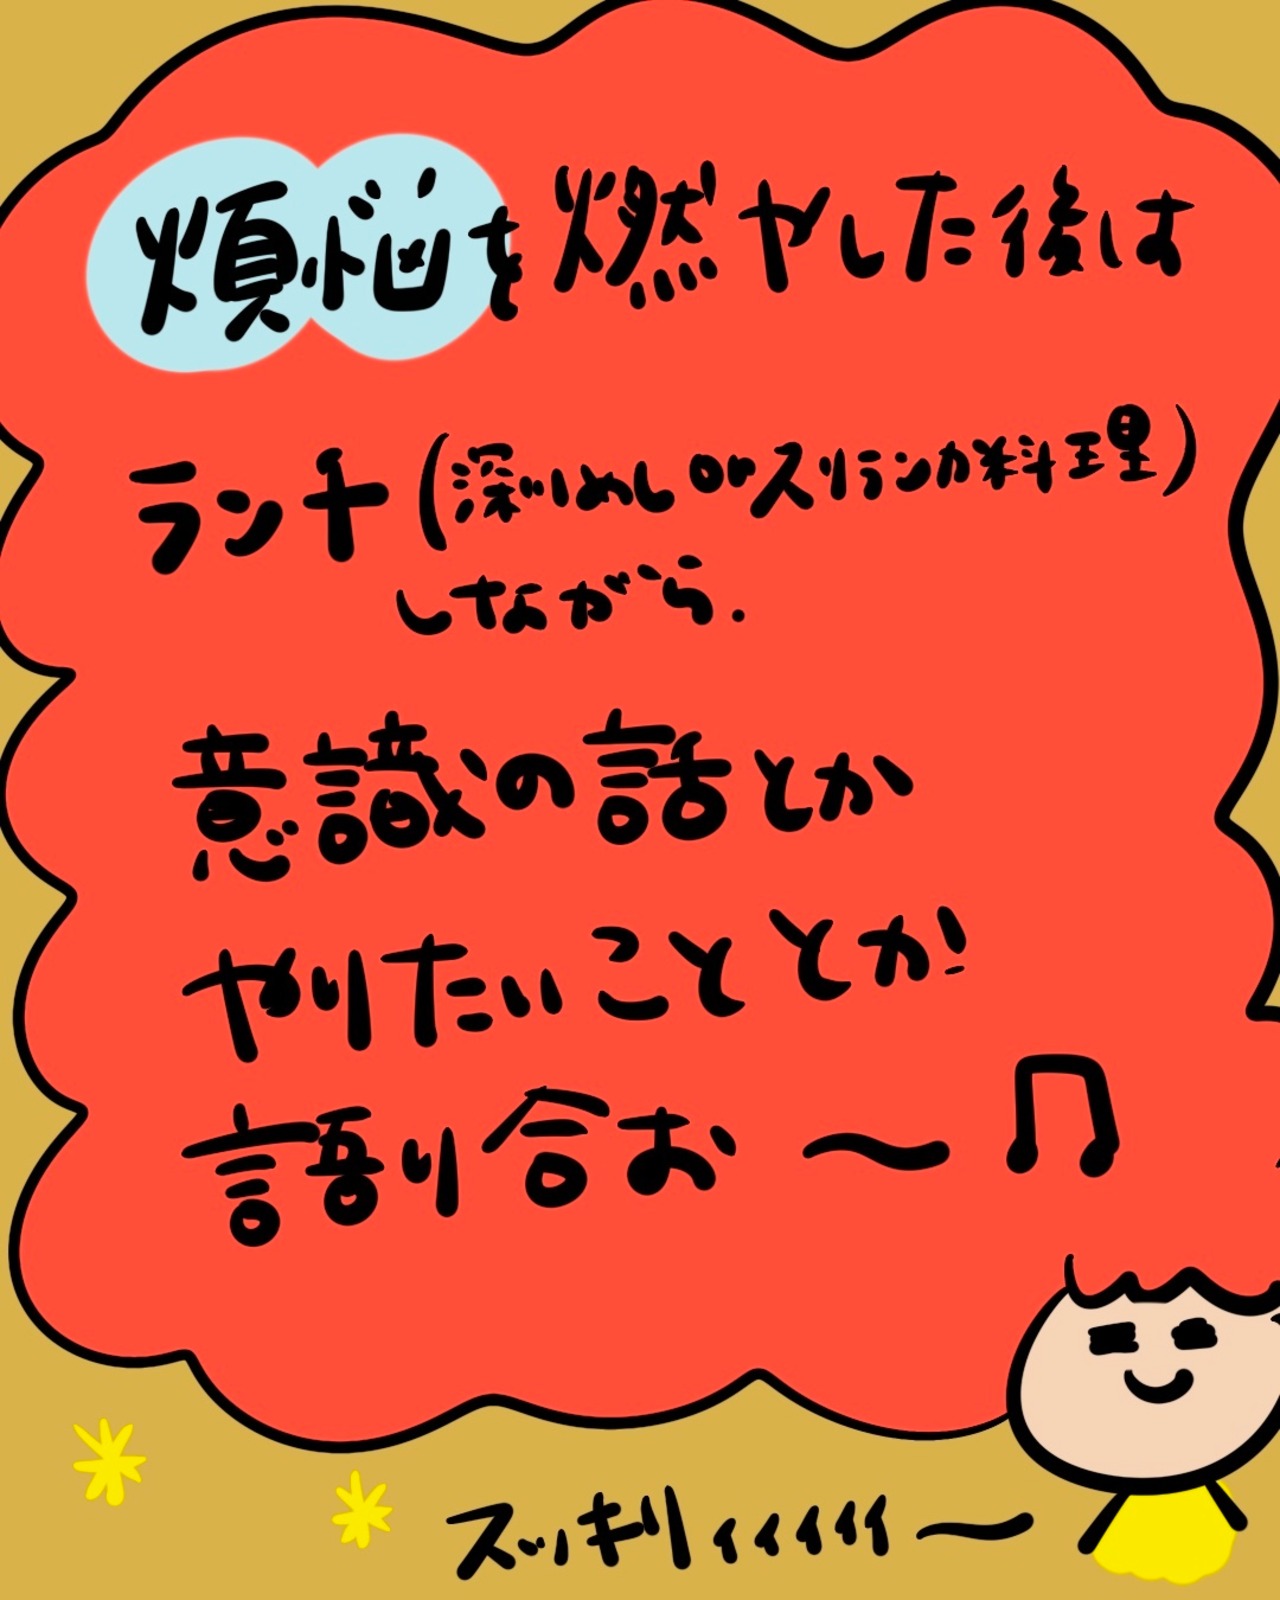 煩悩を燃やした後は
ランチ(深川めしorスリランカ料理)
しながら.
意識の話とか
やりたいこととか!
語り合お〜♫
スッキリィィィィィ〜